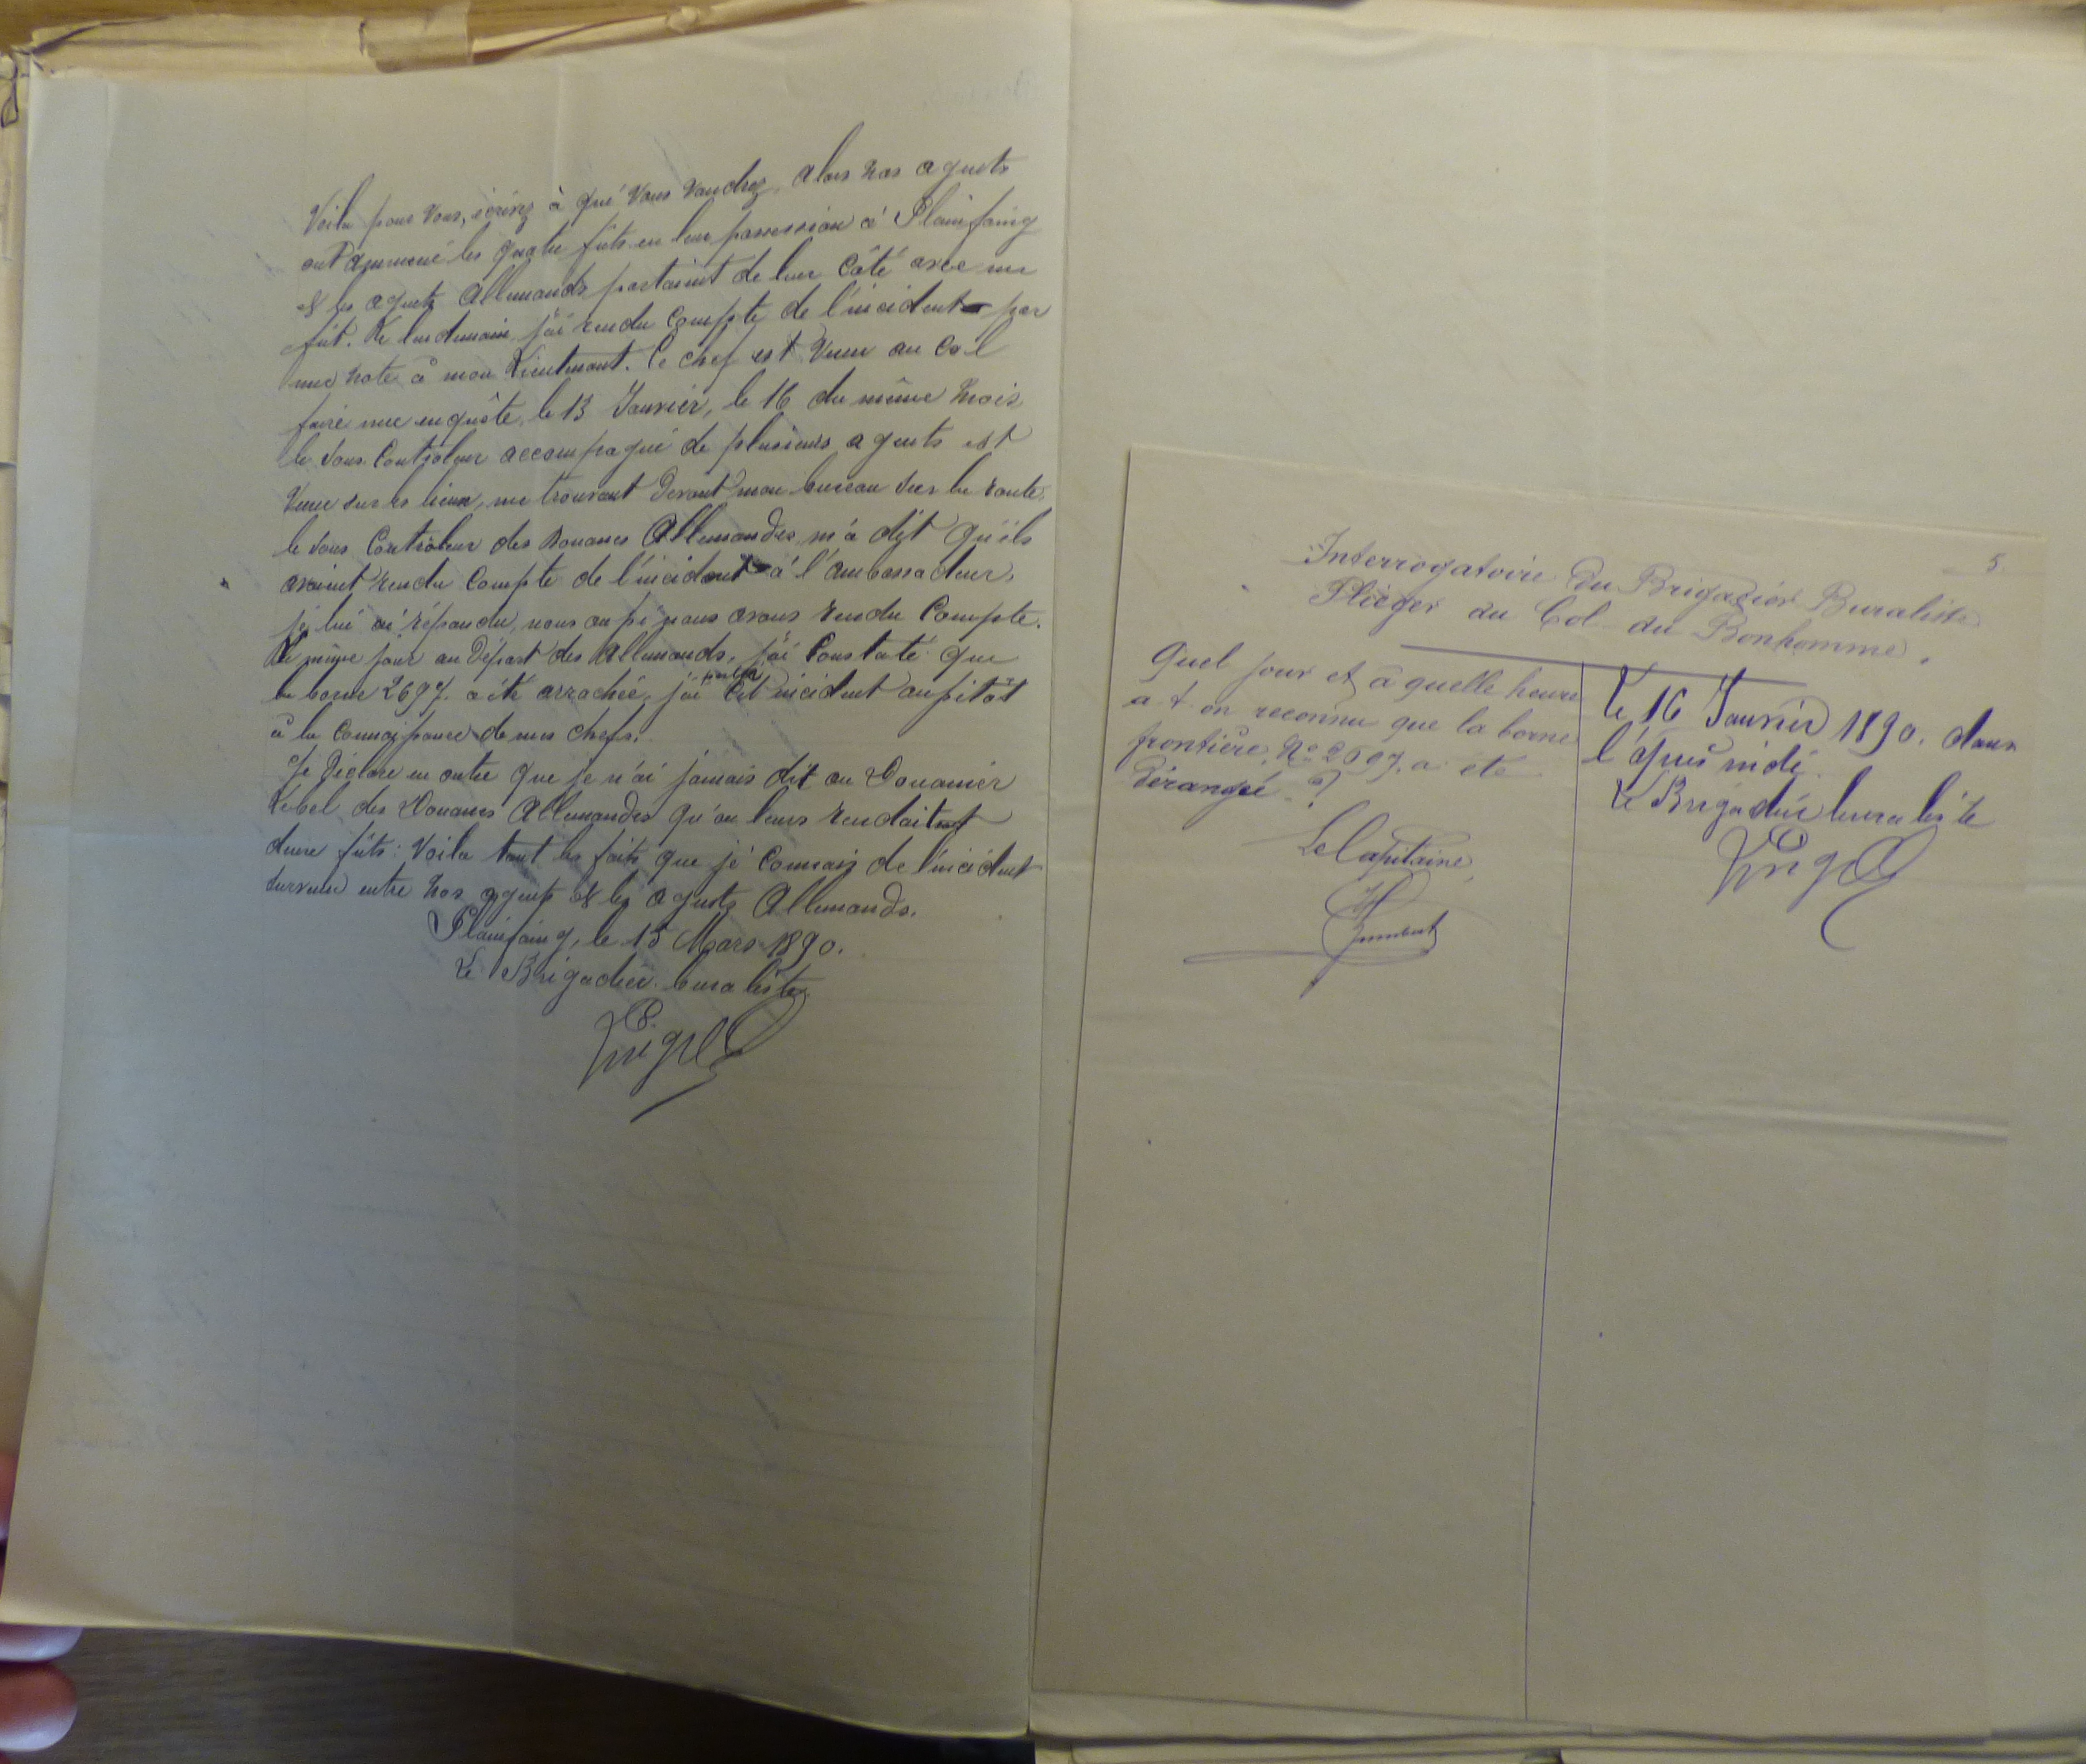 Voila pour vous, écrivez à qui vous voudrez, alors nos agents
ont ammené les quatre fûts en leur possession à Plainfaing
et les agents Allemands partaient de leur Côté avec un
fût. Le lendemain j'ai rendu Compte de l'incident par
une note à mon Lieutenant. Ce chef est Venu au Col
faire une enquête, le 13 Janvier, le 16 du même mois
le Sous Controleur accompagné de plusieurs agents est
Venu sur les lieux, me trouvant Devant mon bureau sur la route.
le Sous Controleur des Douanes Allemandes m'a dit qu'ils
avaient rendu Compte de l'incident à l'ambassadeur,
je lui ai répondu, nous aussi nous avons rendu Compte.
Le même jour au Départ des Allemands, j'ai Constaté que
la borne 2697. a été arrachée, j'ai porté Cet incident aussitôt
à la Connaissance de mes chefs.
Je Déclare en outre que je n'ai jamais dit au Douanier
Lebel des Douanes Allemandes qu'on leurs rendait
deux fûts: Voila tout les faits que je Connais de l'incident
survenu entre nos agents et les agents Allemands.
Plainfaing, le 15 Mars 1890.
Le Brigadier buraliste
5
Interrogatoire du Brigadier Buraliste
Plieger du Col du Bonhomme.
Quel jour et à quelle heure
a-t-on reconnu que la borne
frontière, No 2697. a été
dérangée ?
Le Capitaine,
Humbert
Le 16 Janvier 1890. dans
l'après midi.
Le Brigadier buraliste